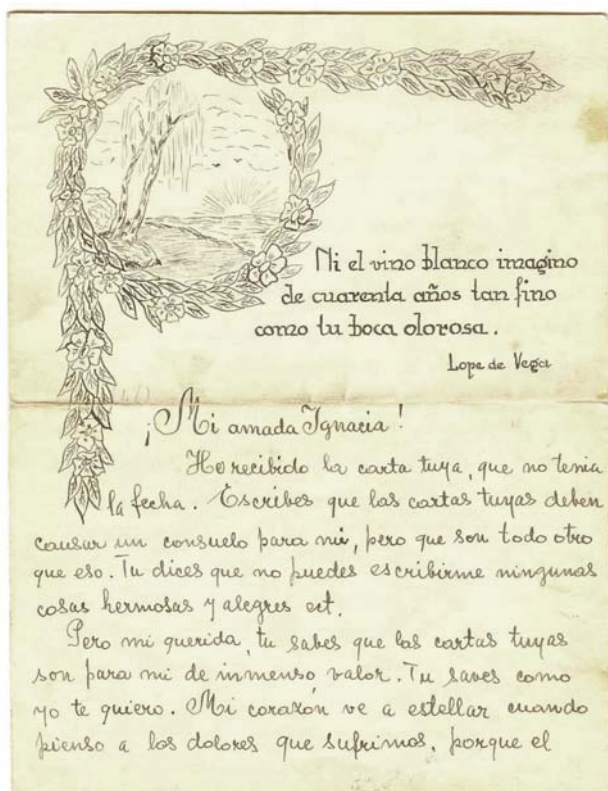 Ni el vino blanco imagino
de cuarenta años tan fino
como tu boca olorosa.
Lope de Vega
¡Mi amada Ignacia!
He recibido la carta tuya, que no tenia
la fecha. Escribes que las cartas tuyas deben
causar un consuelo para mi, pero que son todo otro
que eso. Tu dices que no puedes escribirme ningunas
cosas hermosas y alegres ect.
Pero mi querida, tu sabes que las cartas tuyas
son para mi de inmenso valor. Tu saves como
yo te quiero. Mi corazón ve a estellar cuando
pienso a los dolores que sufrimos, porque el